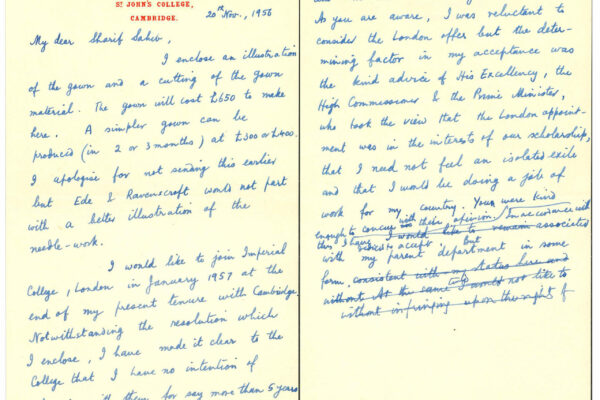 ST JOHN'S COLLEGE,
CAMBRIDGE.
20th Nov., 1956
My dear Sharif Saheb,
I enclose an illustration
of the gown and a cutting of the gown
material. The gown will cost £650 to make
here. A simpler gown can be
produced (in 2 or 3 months) at £300 or £400.
I apologise for not sending this earlier
but Ede & Ravenscroft would not part
with a better illustration of the
needle-work.
I would like to join Imperial
College, London in January 1957 at the
end of my present tenure with Cambridge.
Notwithstanding the resolution which
I enclose, I have made it clear to the
College that I have no intention of
with them for say more than 5 years
As you are aware, I was reluctant to
consider the London offer but the deter-
mining factor in my acceptance was
the kind advice of His Excellency, the
High Commissioner & the Prime Minister,
who took the view that the London appoint-
ment was in the interests of our scholarship,
that I need not feel an isolated exile
and that I would be doing a job of
work for my country. You were kind
enough to concur with their opinion. In accordance with
this I have decided to accept but
I would like to remain associated
with my parent department in some
form, consistent with my status here and
without At the same I would not like to
without infringing upon the right of